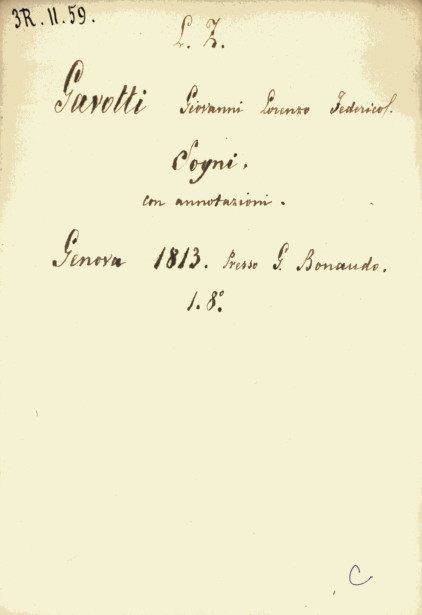 3R. 11. 59.
L. Z.
Gavotti Giovanni Lorenzo Federico.
Sogni.
con annotazioni.
Genova 1813. Presso G. Bonaudo.
1. 8°
C